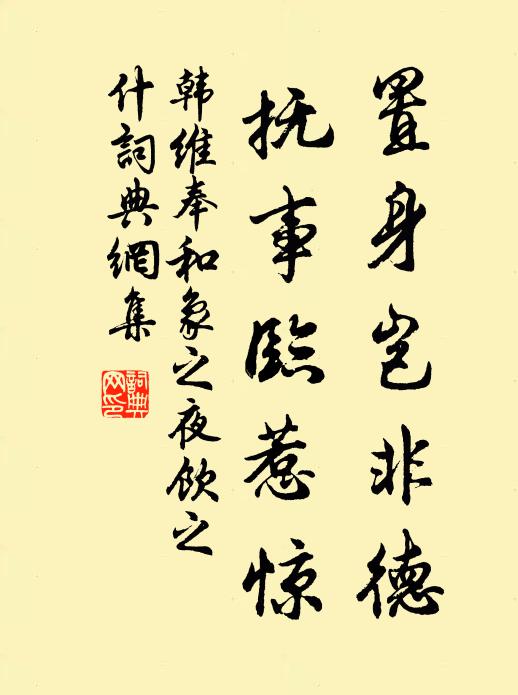 置身岂非德
抚事臨惹惊
韩维奉和象之夜饮之
什詞典網集
詞典
网印